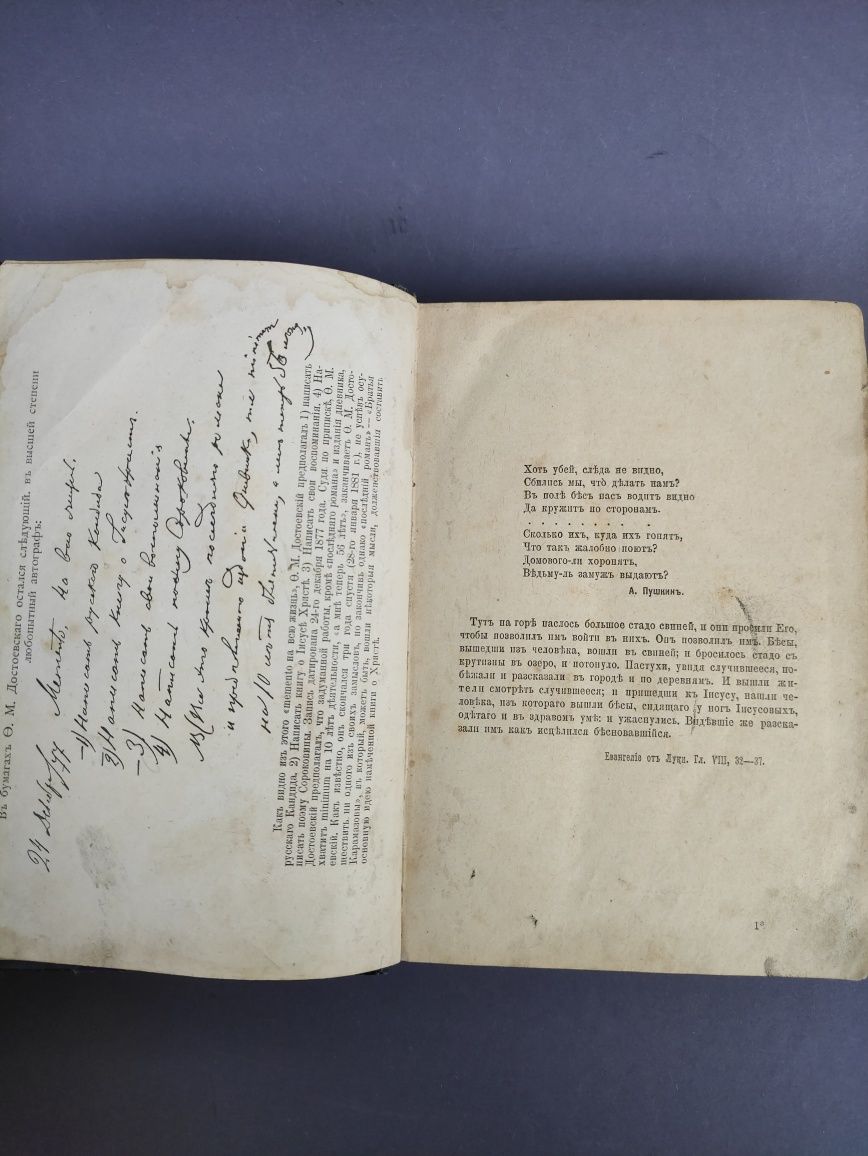 Въ бумагахъ Ѳ. М. Достоевскаго остался слѣдующій, въ высшей степени
любопытный автографъ:
24 Декабря / 77
Memento. На всю жизнь.
1) Написать русскаго Кандида
2) Написать книгу о Іисусѣ Христѣ.
3) Написать свои воспоминанія
4) Написать поэму Сороковины.
NB (Все это, кромѣ послѣдняго романа
и предполагаемаго изданія Дневника, т. е. minimum
на 10 лѣтъ дѣятельности, а мнѣ теперь 56 лѣтъ.)
Какъ видно изъ этого «memento на всю жизнь», Ѳ. М. Достоевскій предполагалъ 1) написать
русскаго Кандида. 2) Написать книгу о Іисусѣ Христѣ. 3) Написать свои воспоминанія. 4) На-
писать поэму Сороковины. Запись датирована 24-го декабря 1877 года. Судя по припискѣ, Ѳ. М.
Достоевскій предполагалъ, что задуманной работы, кромѣ «послѣдняго романа» и изданія дневника,
хватитъ minimum на 10 лѣтъ дѣятельности, «а мнѣ теперь 56 лѣтъ», заканчиваетъ Ѳ. М. Досто-
евскій. Какъ извѣстно, онъ скончался три года спустя (28-го января 1881 г.), не успѣвъ осу-
ществить ни одного изъ своихъ замысловъ, но закончивъ однако «послѣдній романъ» — «Братья
Карамазовы», въ который, можетъ быть, вошли нѣкоторыя мысли, долженствовавшія составить
основную идею намѣченной книги о Христѣ.
Хоть убей, слѣда не видно,
Сбились мы, что дѣлать намъ?
Въ полѣ бѣсъ насъ водитъ видно
Да кружитъ по сторонамъ.
. . . . . . . . . .
Сколько ихъ, куда ихъ гонятъ,
Что такъ жалобно поютъ?
Домового-ли хоронятъ,
Вѣдьму-ль замужъ выдаютъ?
А. Пушкинъ.
Тутъ на горѣ паслось большое стадо свиней, и они просили Его,
чтобы позволилъ имъ войти въ нихъ. Онъ позволилъ имъ. Бѣсы,
вышедши изъ человѣка, вошли въ свиней; и бросилось стадо съ
крутизны въ озеро, и потонуло. Пастухи, увидя случившееся, по-
бѣжали и разсказали въ городѣ и по деревнямъ. И вышли жи-
тели смотрѣть случившееся; и пришедши къ Іисусу, нашли че-
ловѣка, изъ котораго вышли бѣсы, сидящаго у ногъ Іисусовыхъ,
одѣтаго и въ здравомъ умѣ; и ужаснулись. Видѣвшіе же разска-
зали имъ какъ исцѣлился бѣсновавшійся.
Евангеліе отъ Луки. Гл. VIII, 32—37.
1*